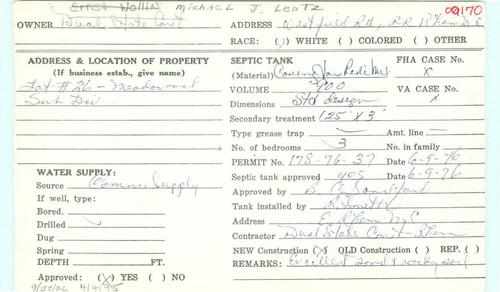 Ernst Wollin MICHAEL J. LENTZ
09170
OWNER Dual State Const
ADDRESS Westfield Rd, RR
RACE: ( ) WHITE ( ) COLORED ( ) OTHER
ADDRESS & LOCATION OF PROPERTY
(If business estab., give name)
Lot #26 - Meadowood
Sub Div
WATER SUPPLY:
Source Comm. Supply
If well, type:
Bored.
Drilled
Dug
Spring
DEPTH FT.
Approved: (✓) YES ( ) NO
4/4/95
SEPTIC TANK
FHA CASE NO.
X
(Material)
VOLUME 900
VA CASE No.
X
Dimensions Std design
Secondary treatment 125' X 3'
Type grease trap — Amt. line —
No. of bedrooms 3 No. in family —
PERMIT No. 178-76-37 Date 6-9-76
Septic tank approved yes Date 6-9-76
Approved by
Tank installed by
Address
Contractor Dual State Const
NEW Construction (✓) OLD Construction ( ) REP. ( )
REMARKS: Excellent sand & rocky soil